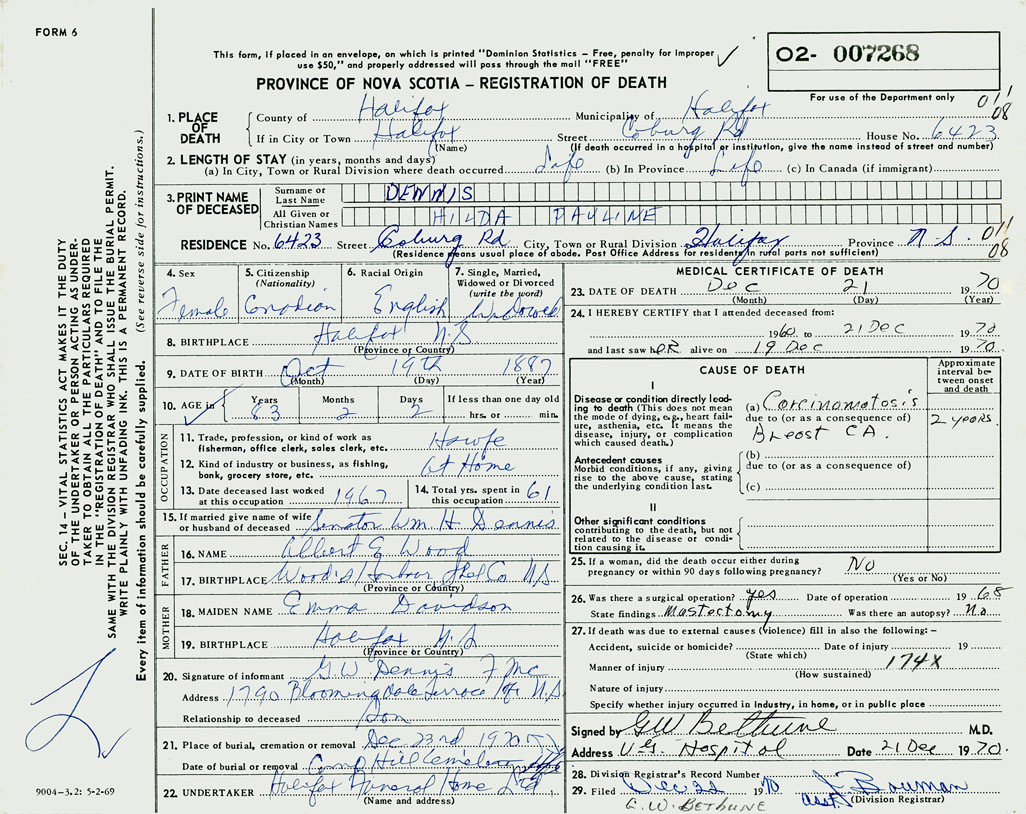 FORM 6
This form, if placed in an envelope, on which is printed "Dominion Statistics – Free, penalty for improper
use $50," and properly addressed will pass through the mail "FREE"
O2- 007268
PROVINCE OF NOVA SCOTIA – REGISTRATION OF DEATH
For use of the Department only
011
08
1. PLACE OF DEATH
County of Halifax Municipality of Halifax
If in City or Town Halifax Street Coburg Rd House No. 6423
(Name) (If death occurred in a hospital or institution, give the name instead of street and number)
2. LENGTH OF STAY (in years, months and days)
(a) In City, Town or Rural Division where death occurred Life (b) In Province Life (c) In Canada (if immigrant)
3. PRINT NAME OF DECEASED
Surname or Last Name DENNIS
All Given or Christian Names HILDA PAULINE
RESIDENCE No. 6423 Street Coburg Rd City, Town or Rural Division Halifax Province N.S. 011
08
(Residence means usual place of abode. Post Office Address for residents in rural parts not sufficient)
4. Sex
Female
5. Citizenship
(Nationality)
Canadian
6. Racial Origin
English
7. Single, Married,
Widowed or Divorced
(write the word)
Widowed
8. BIRTHPLACE Halifax N.S
(Province or Country)
9. DATE OF BIRTH Oct 19th 1887
(Month) (Day) (Year)
10. AGE in Years Months Days If less than one day old
83 2 2 hrs. or min.
OCCUPATION
11. Trade, profession, or kind of work as
fisherman, office clerk, sales clerk, etc. Hswfe
12. Kind of industry or business, as fishing,
bank, grocery store, etc. At Home
13. Date deceased last worked
at this occupation 1967
14. Total yrs. spent in
this occupation 61
15. If married give name of wife
or husband of deceased Senator Wm H Dennis
FATHER
16. NAME Albert E Wood
17. BIRTHPLACE Wood's Harbour Shel Co N.S
(Province or Country)
MOTHER
18. MAIDEN NAME Emma Davidson
19. BIRTHPLACE Halifax N.S
(Province or Country)
20. Signature of informant G.W. Dennis
Address 1790 Bloomingdale Terrace Hfx N.S
Relationship to deceased Son
21. Place of burial, cremation or removal Dec 23rd 1970
Date of burial or removal Camp Hill Cemetery
22. UNDERTAKER Halifax Funeral Home Ltd
(Name and address)
MEDICAL CERTIFICATE OF DEATH
23. DATE OF DEATH Dec 21 1970
(Month) (Day) (Year)
24. I HEREBY CERTIFY that I attended deceased from:
1960 to 21 Dec 1970
and last saw hER alive on 19 Dec 1970
CAUSE OF DEATH
Approximate interval between onset and death
I
Disease or condition directly leading to death (This does not mean the mode of dying, e.g., heart failure, asthenia, etc. It means the disease, injury, or complication which caused death.)
(a) Carcinomatosis
due to (or as a consequence of)
Breast CA.
2 years.
Antecedent causes
Morbid conditions, if any, giving rise to the above cause, stating the underlying condition last.
(b)
due to (or as a consequence of)
(c)
II
Other significant conditions
contributing to the death, but not related to the disease or condition causing it.
25. If a woman, did the death occur either during
pregnancy or within 90 days following pregnancy? No
(Yes or No)
26. Was there a surgical operation? yes Date of operation 1968
State findings Mastectomy Was there an autopsy? No
27. If death was due to external causes (violence) fill in also the following: –
Accident, suicide or homicide? Date of injury 19
(State which)
Manner of injury 174X
(How sustained)
Nature of injury
Specify whether injury occurred in industry, in home, or in public place
Signed by GW Bethune M.D.
Address V.G. Hospital Date 21 Dec 1970.
28. Division Registrar's Record Number
29. Filed Dec 22 1970 J. Bowman
Asst. (Division Registrar)
G.W. BETHUNE
SEC. 14 – VITAL STATISTICS ACT MAKES IT THE DUTY
OF THE UNDERTAKER OR PERSON ACTING AS UNDER-
TAKER TO OBTAIN ALL THE PARTICULARS REQUIRED
IN THE "REGISTRATION OF DEATH" AND TO FILE THE
SAME WITH THE DIVISION REGISTRAR WHO SHALL ISSUE THE BURIAL PERMIT.
WRITE PLAINLY WITH UNFADING INK. THIS IS A PERMANENT RECORD.
Every item of information should be carefully supplied. (See reverse side for instructions.)
9004–3.2: 5-2-69